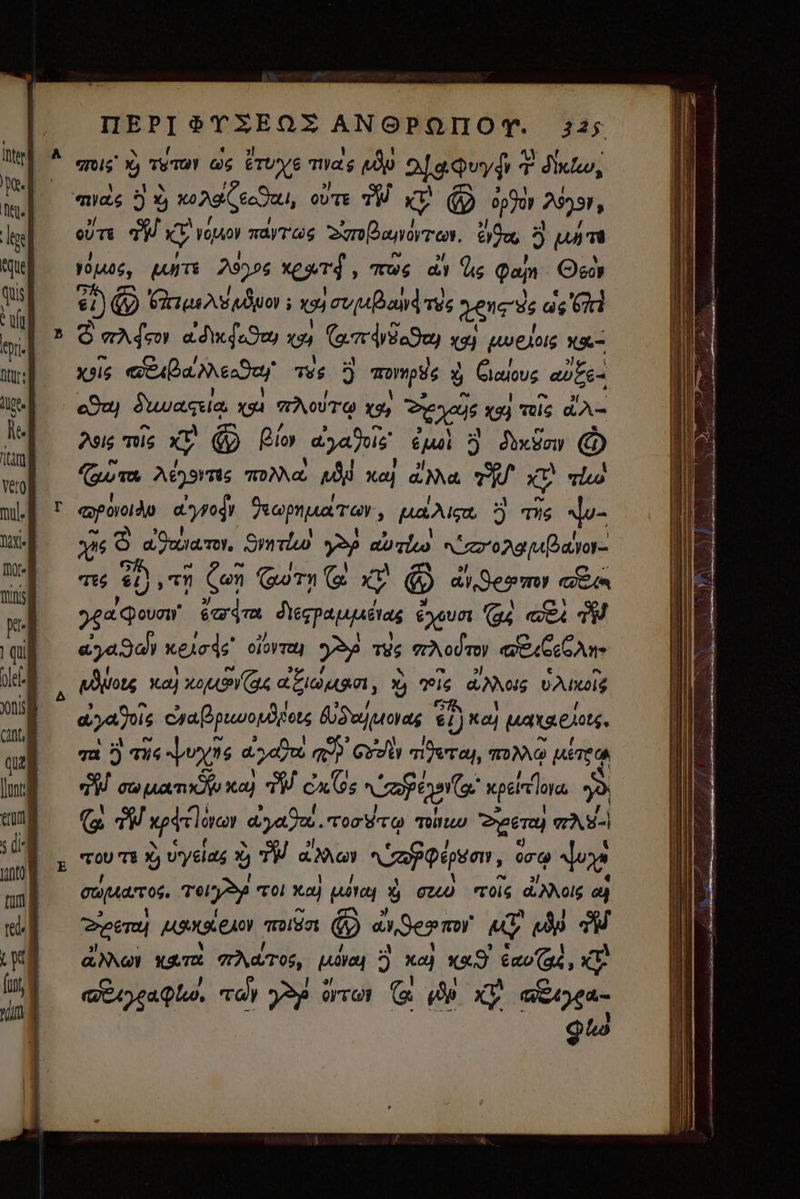 ΠΕΡΙ ΦΥΣΕΩΣ ΑΝΘΡΩΠΟΥ. 325
A τισὶ καὶ τούτων ὡς ἔτυχε τινὰς μὲν διαφυγεῖν τὴν δίκην,
τινὰς δὲ καὶ κολάζεσθαι, οὔτε τῶν κατὰ τὸν ὀρθὸν λόγον,
οὔτε τῶν κατὰ νόμον πάντως ἀποβαινόντων. ἔνθα δὲ μήτε
νόμος, μήτε λόγος κρατεῖ, πῶς ἄν τις φαίη Θεὸν
εἶναι τὸν ἐπιμελούμενον; καὶ συμβαίνει τοὺς χρηστοὺς ὡς ἐπὶ
B τὸ πλεῖστον ἀδικεῖσθαι καὶ ταπεινοῦσθαι καὶ μυρίοις κα-
κοῖς περιβάλλεσθαι· τοὺς δὲ πονηροὺς καὶ βιαίους αὔξε-
σθαι δυναστείᾳ καὶ πλούτῳ καὶ ἀρχαῖς καὶ τοῖς ἄλ-
λοις τοῖς κατὰ τὸν βίον ἀγαθοῖς· ἐμοὶ δὲ δοκοῦσιν οἱ
ταῦτα λέγοντες πολλὰ μὲν καὶ ἄλλα τῶν κατὰ τὴν
Γ πρόνοιαν ἀγνοεῖν θεωρημάτων, μάλιστα δὲ τῆς ψυ-
χῆς τὸ ἀθάνατον. θνητὴν γὰρ αὐτὴν ὑπολαμβάνον-
τες εἶναι, τῇ ζωῇ ταύτῃ τὰ κατὰ τὸν ἄνθρωπον περι
γράφουσιν· ἔπειτα διεστραμμένας ἔχουσι τὰς περὶ τῶν
ἀγαθῶν κρίσεις· οἴονται γὰρ τοὺς πλοῦτον περιβεβλη-
Δ μένους καὶ κομῶντας ἀξιώμασι, καὶ τοῖς ἄλλοις ὑλικοῖς
ἀγαθοῖς ἐναβρυνομένους εὐδαίμονας εἶναι καὶ μακαρίους.
τὰ δὲ τῆς ψυχῆς ἀγαθὰ παρ' οὐδὲν τίθενται, πολλῷ μέτρῳ
τῶν σωματικῶν καὶ τῶν ἐκτὸς ὑπερέχοντα· κρείττονα γὰρ
τὰ τῶν κρειττόνων ἀγαθά. τοσούτῳ τοίνυν ἀρεταὶ πλού-
E του τε καὶ ὑγείας καὶ τῶν ἄλλων ὑπερφέρουσιν, ὅσῳ ψυχὴ
σώματος. τοιγάρτοι καὶ μόναι καὶ σὺν τοῖς ἄλλοις αἱ
ἀρεταὶ μακάριον ποιοῦσι τὸν ἄνθρωπον· μετὰ μὲν τῶν
ἄλλων κατὰ πλάτος, μόναι δὲ καὶ καθ' ἑαυτάς, κατὰ
περιγραφήν. τῶν γὰρ ὄντων τὰ μὲν κατὰ περιγρα-
φὴν